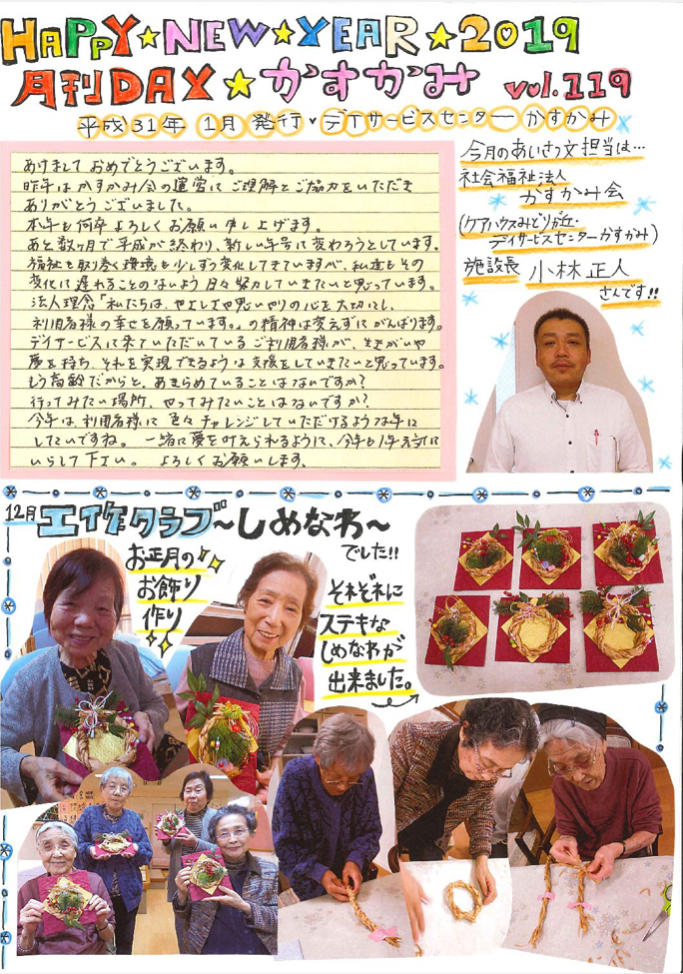 HAPPY★NEW★YEAR★2019
月刊DAY★かすかみ vol.119
平成31年 1月 発行・デイサービスセンター かすかみ
あけまして おめでとうございます。
昨年は かすかみ会の運営に ご理解と ご協力をいただき
ありがとうございました。
本年も何卒よろしくお願い申し上げます。
あと数ヶ月で平成が終わり、新しい年号に変わろうとしています。
福祉を取り巻く環境も少しずつ変化してきていますが、私達もその
変化に遅れることのないよう日々努力していきたいと思っています。
法人理念「私たちは、やさしさや思いやりの心を大切にし、
利用者様の幸せを願っています。」の精神は変えずにがんばります。
デイサービスに来ていただいているご利用者様が、生きがいや
夢を持ち、それを実現できるような支援をしていきたいと思っています。
もう高齢だからと、あきらめていることはないですか?
行ってみたい場所、やってみたいことはないですか?
今年は、利用者様に色々チャレンジしていただけるような年に
したいですね。 一緒に夢を叶えられるように、今年も1年元気に
いらして下さい。 よろしくお願いします。
今月のあいさつ文担当は…
社会福祉法人
かすかみ会
(ケアハウスみどりが丘・
デイサービスセンターかすかみ)
施設長 小林正人
さんです!!
12月 工作クラブ~しめなわ~
でした!!
お正月の
お飾り
作り
それぞれに
ステキな
しめなわが
出来ました。